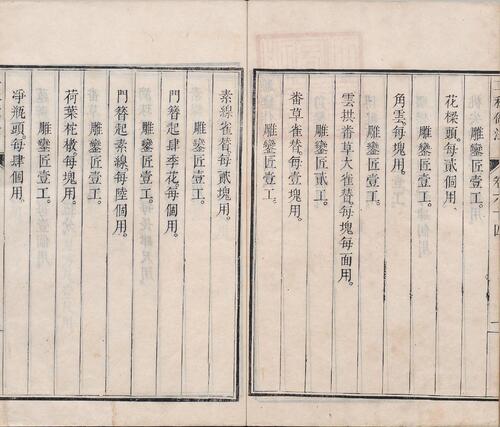 卷六 四
雕鑾匠壹工。
花樑頭每貳個用。
雕鑾匠壹工。
角雲每塊用。
雕鑾匠壹工。
雲拱番草大雀替每塊每面用。
雕鑾匠貳工。
番草雀替每塊用。
雕鑾匠壹工。
素線雀替每貳塊用。
雕鑾匠壹工。
門簪起肆季花每個用。
雕鑾匠壹工。
門簪起素線每陸個用。
雕鑾匠壹工。
荷葉枕橔每塊用。
雕鑾匠壹工。
淨瓶頭每肆個用。